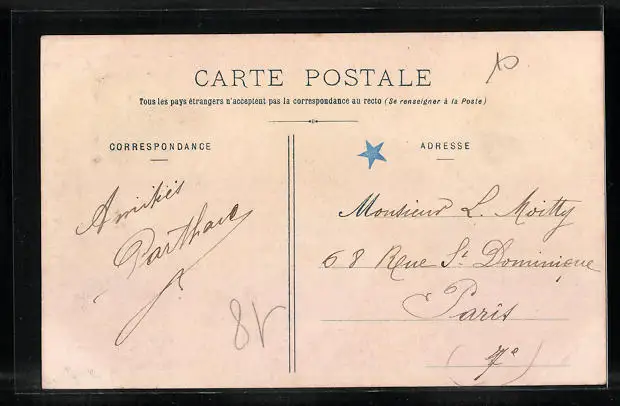 CARTE POSTALE
Tous les pays étrangers n'acceptent pas la correspondance au recto (Se renseigner à la Poste)
CORRESPONDANCE
Amitiés
ADRESSE
Monsieur L. Moitty
68 Rue St. Dominique
Paris
(7e)